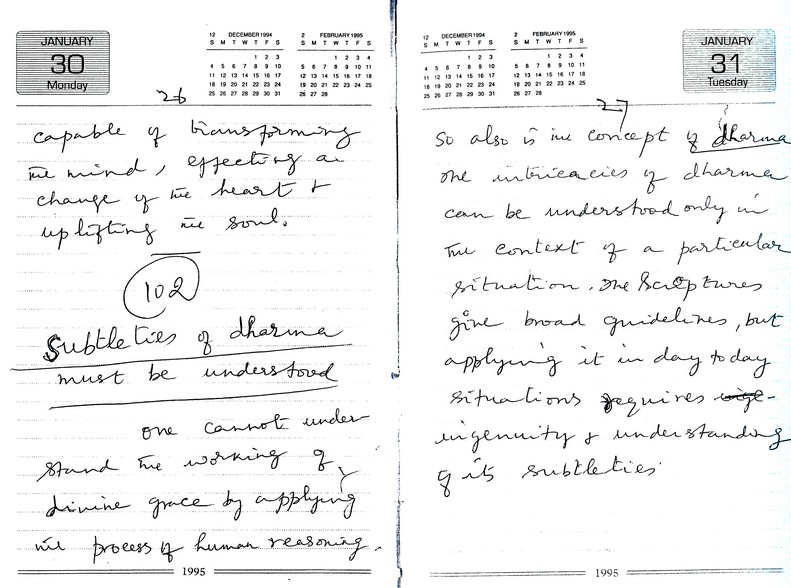 JANUARY
30
Monday
12 DECEMBER 1994
S M T W T F S
1 2 3
4 5 6 7 8 9 10
11 12 13 14 15 16 17
18 19 20 21 22 23 24
25 26 27 28 29 30 31
2 FEBRUARY 1995
S M T W T F S
1 2 3 4
5 6 7 8 9 10 11
12 13 14 15 16 17 18
19 20 21 22 23 24 25
26 27 28
26
capable of transforming
the mind, effecting a
change of the heart &
uplifting the soul.
102
Subtleties of dharma
must be understood
One cannot under-
stand the working of
divine grace by applying
the process of human reasoning.
1995
12 DECEMBER 1994
S M T W T F S
1 2 3
4 5 6 7 8 9 10
11 12 13 14 15 16 17
18 19 20 21 22 23 24
25 26 27 28 29 30 31
2 FEBRUARY 1995
S M T W T F S
1 2 3 4
5 6 7 8 9 10 11
12 13 14 15 16 17 18
19 20 21 22 23 24 25
26 27 28
JANUARY
31
Tuesday
27
So also is the concept of dharma
The intricacies of dharma
can be understood only in
the context of a particular
situation. The Scriptures
give broad guidelines, but
applying it in day to day
situations requires
ingenuity & understanding
of its subtleties
1995